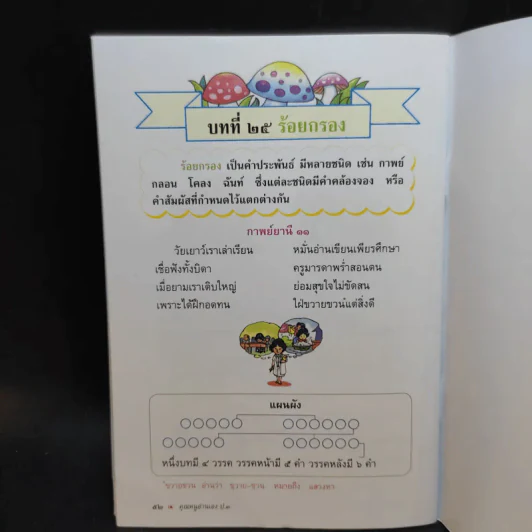 บทที่ ๒๕ ร้อยกรอง
ร้อยกรอง เป็นคำประพันธ์ มีหลายชนิด เช่น กาพย์
กลอน โคลง ฉันท์ ซึ่งแต่ละชนิดมีคำคล้องจอง หรือ
คำสัมผัสที่กำหนดไว้แตกต่างกัน
กาพย์ยานี ๑๑
วัยเยาว์เราเล่าเรียน หมั่นอ่านเขียนเพียรศึกษา
เชื่อฟังทั้งบิดา ครูมารดาพร่ำสอนตน
เมื่อยามเราเติบใหญ่ ย่อมสุขใจไม่ขัดสน
เพราะได้ฝึกอดทน ใฝ่ขวายขวนแต่สิ่งดี
แผนผัง
หนึ่งบทมี ๔ วรรค วรรคหน้ามี ๕ คำ วรรคหลังมี ๖ คำ
ขวายขวน อ่านว่า ขฺวาย-ขฺวน หมายถึง แสวงหา
๕๒